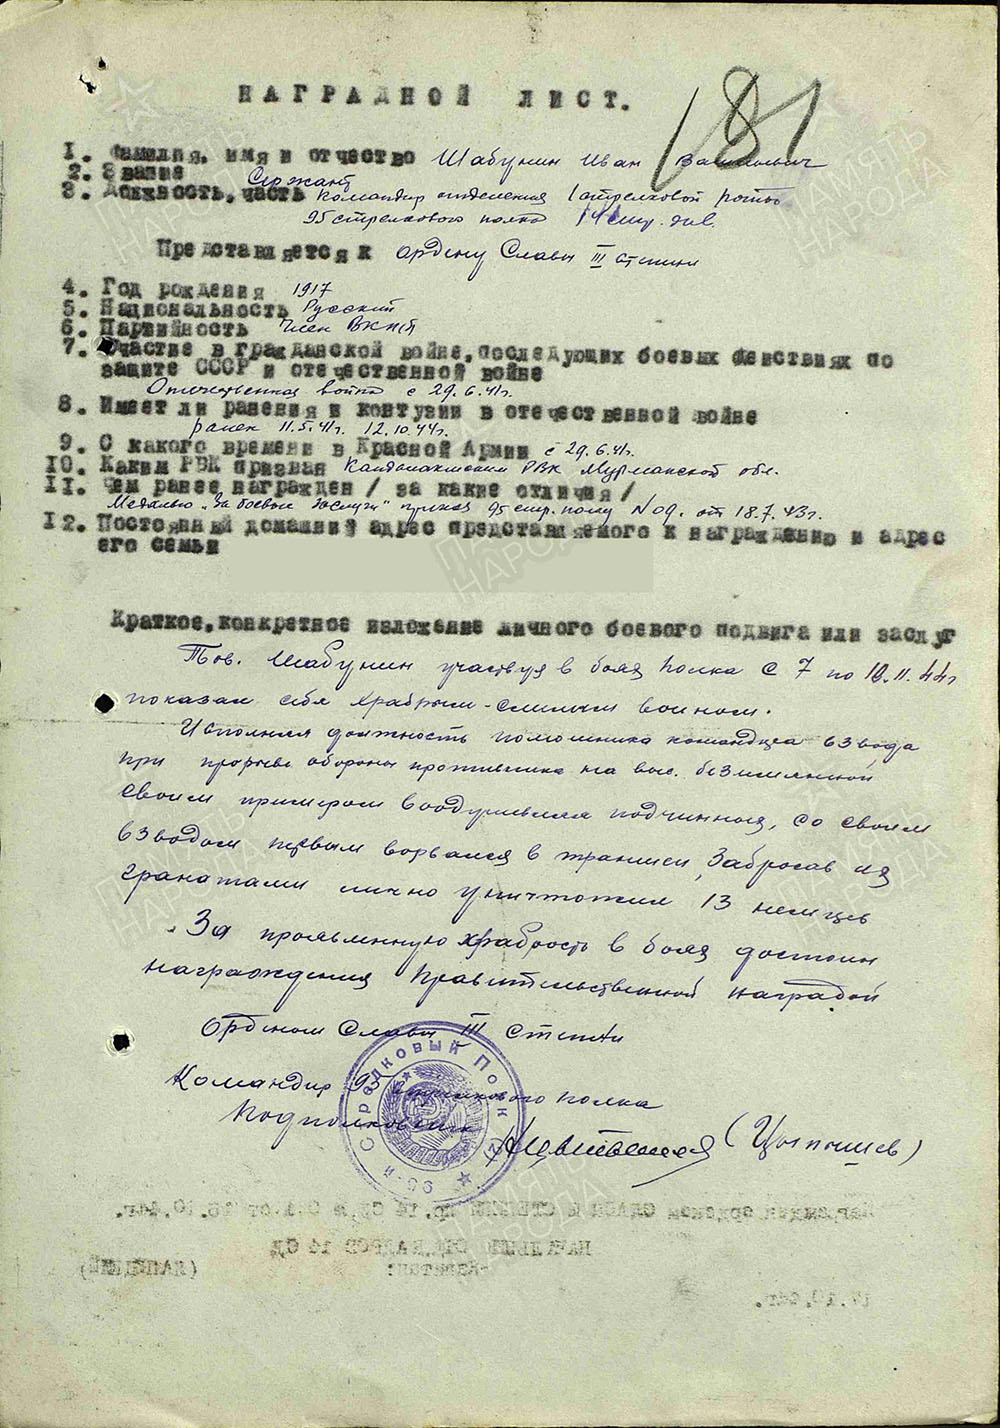 181
НАГРАДНОЙ ЛИСТ.
1. Фамилия, имя и отчество Шабунин Иван Васильевич
2. Звание Сержант
3. Должность, часть Командир отделения 1 стрелковой роты
95 стрелкового полка 14 стр. див.
Представляется к ордену Славы III степени
4. Год рождения 1917
5. Национальность Русский
6. Партийность Член ВКП(б)
7. Участие в гражданской войне, последующих боевых действиях по
защите СССР и отечественной войне
Отечественная война с 29.6.41г.
8. Имеет ли ранения и контузии в отечественной войне
ранен 11.5.41г. 12.10.44г.
9. С какого времени в Красной Армии с 29.6.41г.
10. Каким РВК призван Кандалакшским РВК Мурманской обл.
11. Чем ранее награжден / за какие отличия /
Медалью "За боевые заслуги" приказ 95 стр. полку N 09. от 18.7.43г.
12. Постоянный домашний адрес представляемого к награждению и адрес
его семьи
Краткое, конкретное изложение личного боевого подвига или заслуг
Тов. Шабунин участвуя в боях полка с 7 по 10.11.44г
показал себя храбрым-смелым воином.
Исполняя должность помошника командира взвода
при прорыве обороны противника на выс. безимянной
своим примером воодушевляя подчинных, со своим
взводом первым ворвался в траншеи, Забросав их
гранатами лично уничтожил 13 немцев
За проявленную храбрость в боях достоин
награждения Правительственной наградой
Орденом Славы III степени
Командир 95 стрелкового полка
Подполковник
95-й Стрелковый Полк
Награжден орденом СЛАВЫ III СТЕПЕНИ пр. 14 СД от 16.10.44г.
НАЧАЛЬНИК ОТД. КАДРОВ 14 СД
-Капитан:
17.10.44г.
ПАМЯТЬ
НАРОДА